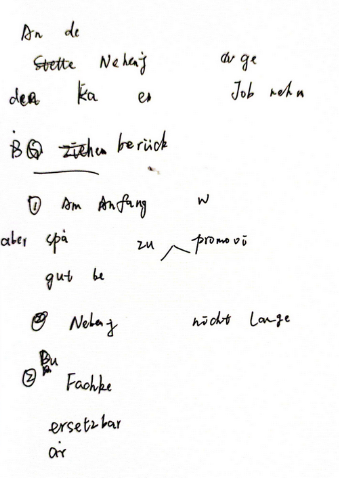 An de
Stelle Nebenj ange
den Ka er Job nehm
B ziehen berück
① Am Anfang w
aber spä zu promovi
gut be
Nebenj nicht lange
② Bu Fachke
ersetzbar
air